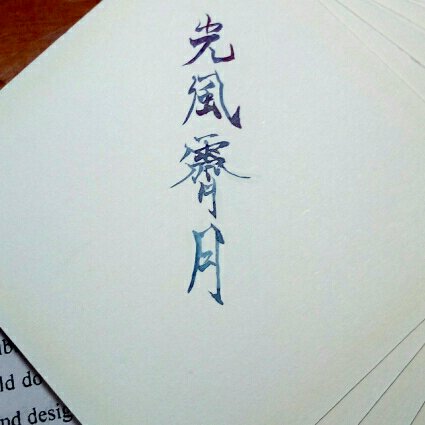 光風霽月
ld do
nd desig